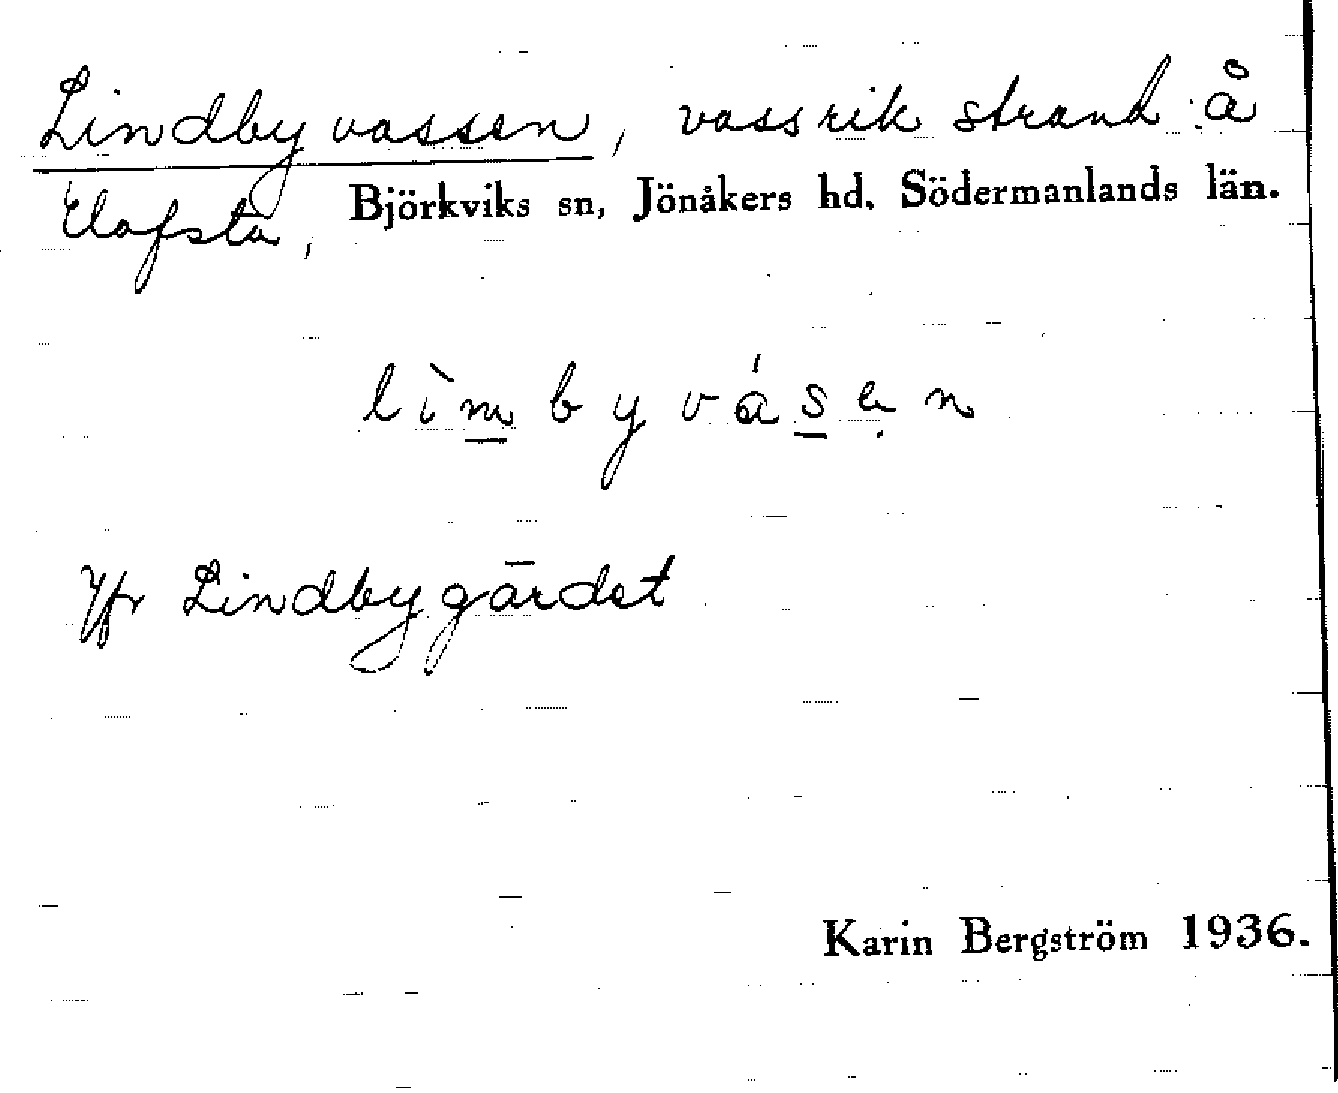 Lindbyvassen, vassrik strand å
Elofsta, Björkviks sn, Jönåkers hd, Södermanlands län.
lìmbyvásen
Jfr Lindbygärdet
Karin Bergström 1936.